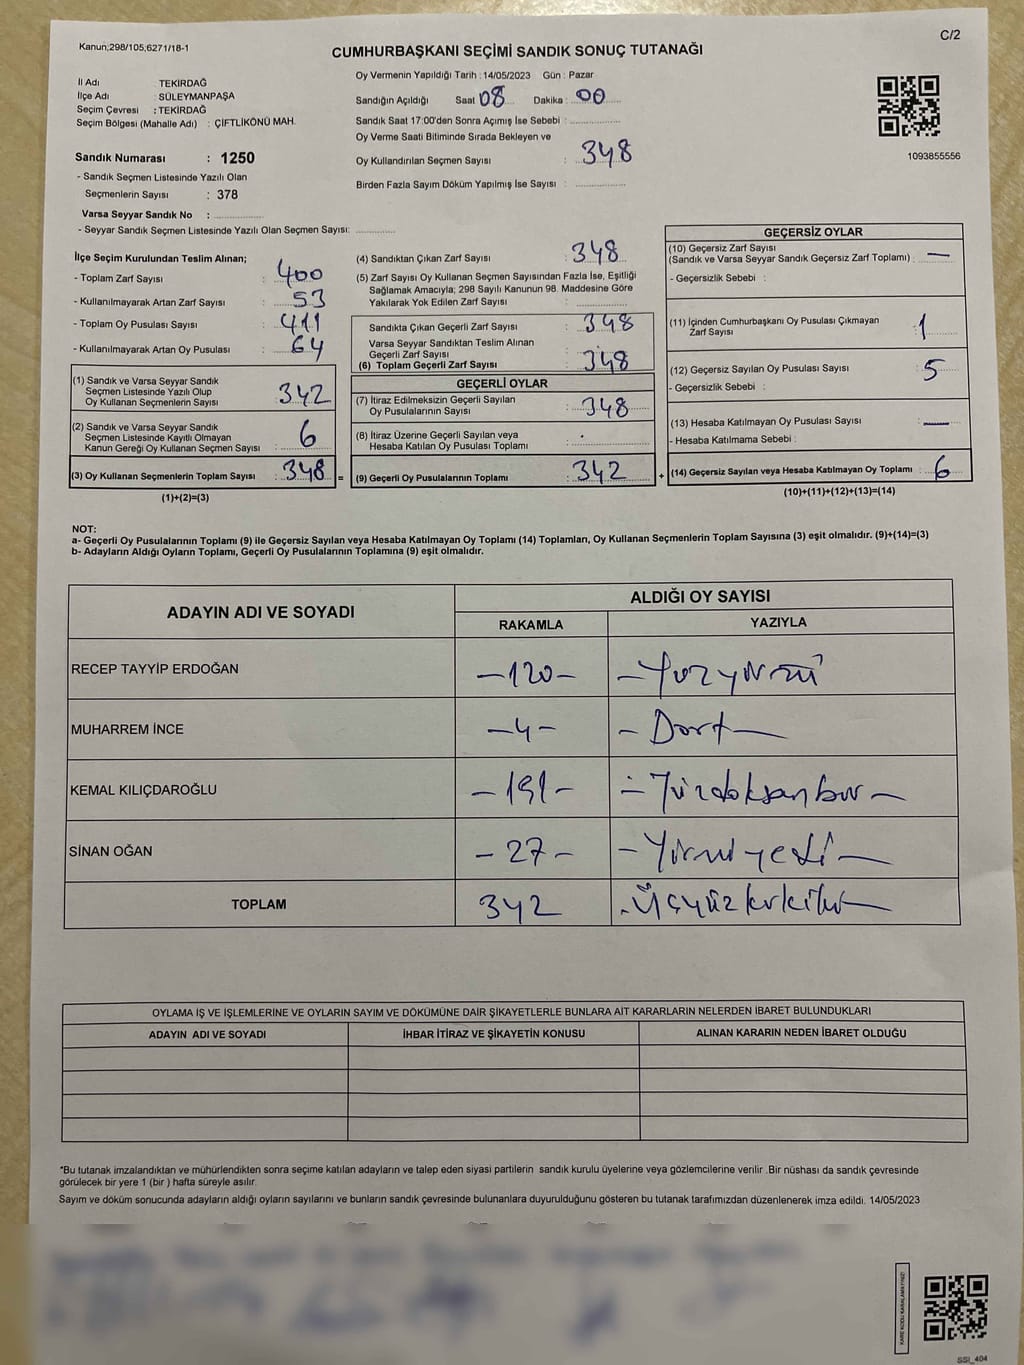 Kanun;298/105,6271/18-1
C/2
CUMHURBAŞKANI SEÇİMİ SANDIK SONUÇ TUTANAĞI
İl Adı : TEKİRDAĞ
İlçe Adı : SÜLEYMANPAŞA
Seçim Çevresi : TEKİRDAĞ
Seçim Bölgesi (Mahalle Adı) : ÇİFTLİKÖNÜ MAH.
Sandık Numarası : 1250
- Sandık Seçmen Listesinde Yazılı Olan
Seçmenlerin Sayısı : 378
Varsa Seyyar Sandık No :
- Seyyar Sandık Seçmen Listesinde Yazılı Olan Seçmen Sayısı:
Oy Vermenin Yapıldığı Tarih : 14/05/2023 Gün : Pazar
Sandığın Açıldığı Saat 08 Dakika : 00
Sandık Saat 17:00'den Sonra Açımış İse Sebebi :
Oy Verme Saati Bitiminde Sırada Bekleyen ve
Oy Kullandırılan Seçmen Sayısı : 348
Birden Fazla Sayım Döküm Yapılmış İse Sayısı :
1093855556
İlçe Seçim Kurulundan Teslim Alınan;
- Toplam Zarf Sayısı : 400
- Kullanılmayarak Artan Zarf Sayısı : 53
- Toplam Oy Pusulası Sayısı : 411
- Kullanılmayarak Artan Oy Pusulası : 64
(1) Sandık ve Varsa Seyyar Sandık
Seçmen Listesinde Yazılı Olup
Oy Kullanan Seçmenlerin Sayısı : 342
(2) Sandık ve Varsa Seyyar Sandık
Seçmen Listesinde Kayıtlı Olmayan
Kanun Gereği Oy Kullanan Seçmen Sayısı : 6
(3) Oy Kullanan Seçmenlerin Toplam Sayısı : 348 =
(1)+(2)=(3)
(4) Sandıktan Çıkan Zarf Sayısı : 348
(5) Zarf Sayısı Oy Kullanan Seçmen Sayısından Fazla İse, Eşitliği
Sağlamak Amacıyla; 298 Sayılı Kanunun 98. Maddesine Göre
Yakılarak Yok Edilen Zarf Sayısı :
Sandıkta Çıkan Geçerli Zarf Sayısı : 348
Varsa Seyyar Sandıktan Teslim Alınan
Geçerli Zarf Sayısı :
(6) Toplam Geçerli Zarf Sayısı : 348
GEÇERLİ OYLAR
(7) İtiraz Edilmeksizin Geçerli Sayılan
Oy Pusulalarının Sayısı : 348
(8) İtiraz Üzerine Geçerli Sayılan veya
Hesaba Katılan Oy Pusulası Toplamı :
(9) Geçerli Oy Pusulalarının Toplamı : 342 +
GEÇERSİZ OYLAR
(10) Geçersiz Zarf Sayısı
(Sandık ve Varsa Seyyar Sandık Geçersiz Zarf Toplamı) : —
- Geçersizlik Sebebi :
(11) İçinden Cumhurbaşkanı Oy Pusulası Çıkmayan
Zarf Sayısı : 1
(12) Geçersiz Sayılan Oy Pusulası Sayısı : 5
- Geçersizlik Sebebi :
(13) Hesaba Katılmayan Oy Pusulası Sayısı : —
- Hesaba Katılmama Sebebi :
(14) Geçersiz Sayılan veya Hesaba Katılmayan Oy Toplamı : 6
(10)+(11)+(12)+(13)=(14)
NOT:
a- Geçerli Oy Pusulalarının Toplamı (9) ile Geçersiz Sayılan veya Hesaba Katılmayan Oy Toplamı (14) Toplamları, Oy Kullanan Seçmenlerin Toplam Sayısına (3) eşit olmalıdır. (9)+(14)=(3)
b- Adayların Aldığı Oyların Toplamı, Geçerli Oy Pusulalarının Toplamına (9) eşit olmalıdır.
ADAYIN ADI VE SOYADI
ALDIĞI OY SAYISI
RAKAMLA YAZIYLA
RECEP TAYYİP ERDOĞAN -120- - Yüzyirmi
MUHARREM İNCE -4- - Dört -
KEMAL KILIÇDAROĞLU -191- - Yüzdoksanbir -
SİNAN OĞAN -27- - Yirmiyedi -
TOPLAM 342 Üçyüzkırkiki
OYLAMA İŞ VE İŞLEMLERİNE VE OYLARIN SAYIM VE DÖKÜMÜNE DAİR ŞİKAYETLERLE BUNLARA AİT KARARLARIN NELERDEN İBARET BULUNDUKLARI
ADAYIN ADI VE SOYADI İHBAR İTİRAZ VE ŞİKAYETİN KONUSU ALINAN KARARIN NEDEN İBARET OLDUĞU
*Bu tutanak imzalandıktan ve mühürlendikten sonra seçime katılan adayların ve talep eden siyasi partilerin sandık kurulu üyelerine veya gözlemcilerine verilir .Bir nüshası da sandık çevresinde
görülecek bir yere 1 (bir ) hafta süreyle asılır.
Sayım ve döküm sonucunda adayların aldığı oyların sayılarını ve bunların sandık çevresinde bulunanlara duyurulduğunu gösteren bu tutanak tarafımızdan düzenlenerek imza edildi. 14/05/2023
KARE KODU KARALAMAYINIZ!
SSİ_404